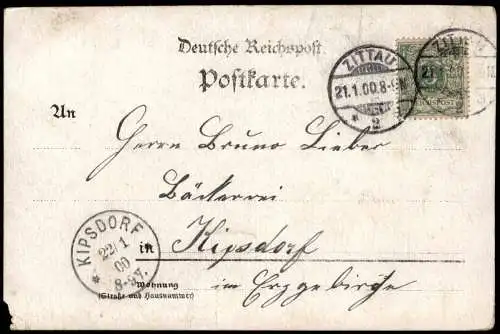 Deutsche Reichspost.
Postkarte.
ZITTAU
21.1.00.8-9V.
* 2
ZITTAU
21.1.
REICHSPOST
An
Herrn Bruno Lieber
Bäckerei
in Kipsdorf
im Erzgebirge
Wohnung
(Straße und Hausnummer)
KIPSDORF
22/1
00
8-9V.
*